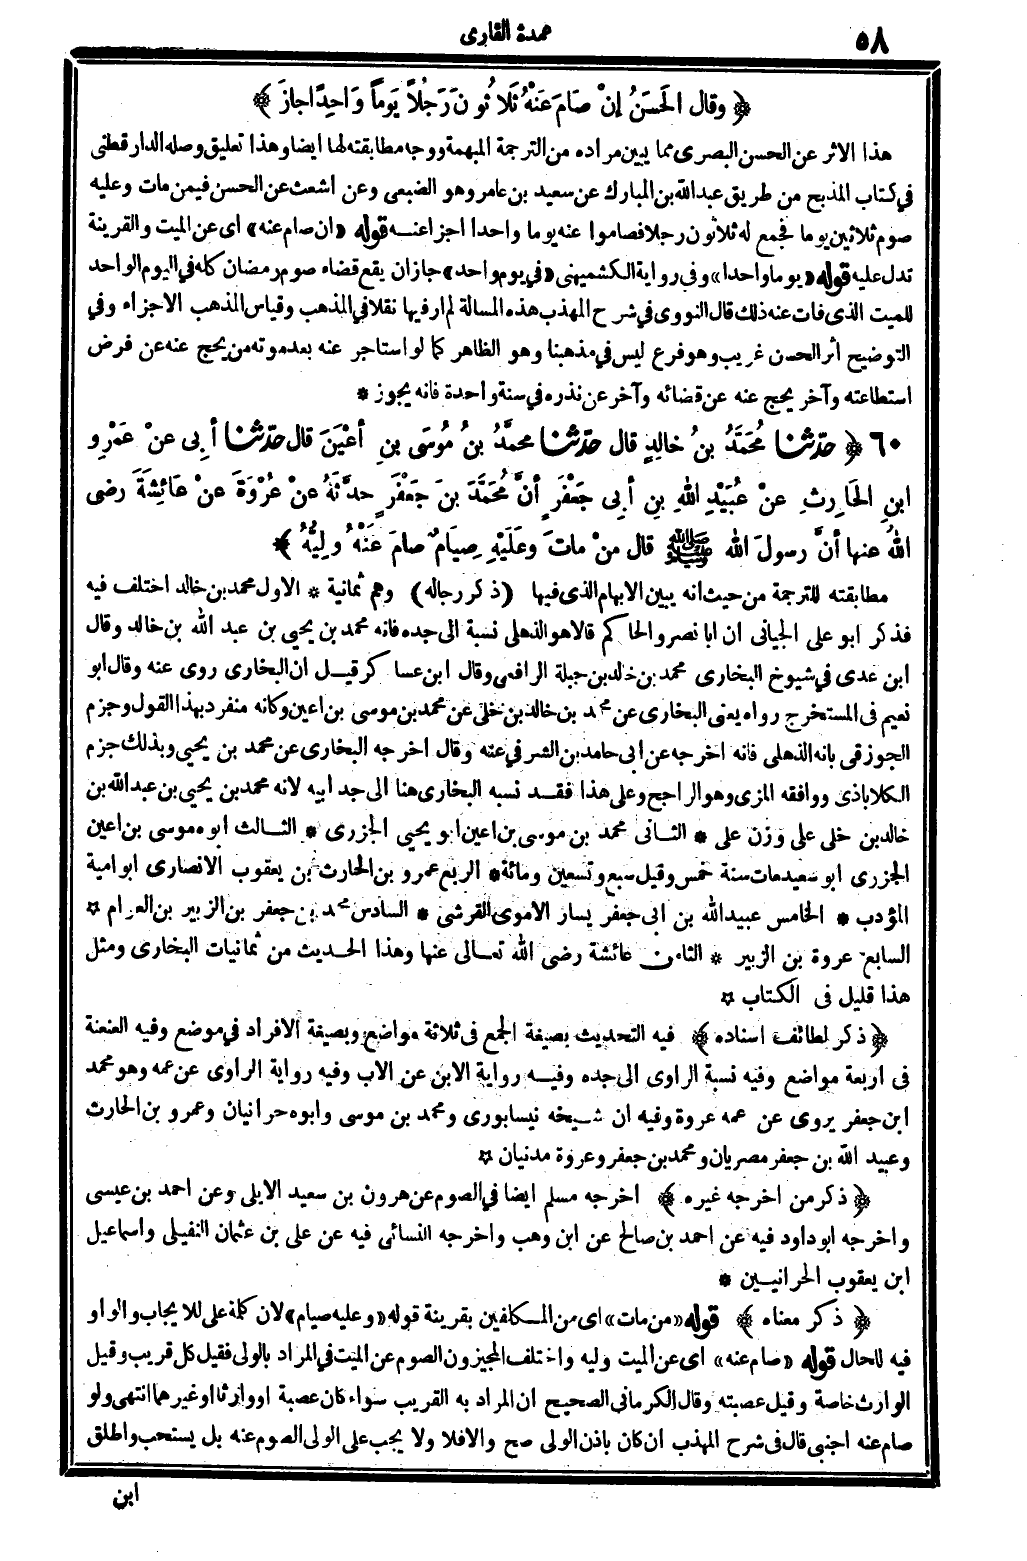 ٥٨
عمدة القارى
﴿ وقال الحَسَنُ إنْ صَامَ عَنْهُ ثَلاَثُونَ رَجُلاً يَوْماً وَاحِداً جازَ ﴾
هذا الاثر عن الحسن البصرى مما يبين مراده من الترجمة المبهمة ووجه مطابقته لها ايضا وهذا تعليق وصله الدار قطنى
في كتاب المذبح من طريق عبد الله بن المبارك عن سعيد بن عامر وهو الضبعى وعن اشعث عن الحسن فيمن مات وعليه
صوم ثلاثين يوما فجمع له ثلاثون رجلا فصاموا عنه يوما واحدا اجزا عنه قوله «ان صام عنه» اى عن الميت والقرينة
تدل عليه قوله «يوما واحدا» وفى رواية الكشميهنى «في يوم واحد» جاز ان يقع قضاء صوم رمضان كله في اليوم الواحد
للميت الذى فات عنه ذلك قال النووى في شرح المهذب هذه المسالة لم ار فيها نقلا في المذهب وقياس المذهب الاجزاء وفي
التوضيح أثر الحسن غريب وهو فرع ليس في مذهبنا وهو الظاهر كما لو استاجر عنه بعد موته من يحج عنه عن فرض
استطاعته وآخر يحج عنه عن قضائه وآخر عن نذره في سنة واحدة فانه يجوز *
٦٠ ﴿ حدثنا مُحَمَّدُ بنُ خالِدٍ قال حدثنا محمَّدُ بنُ مُوسَى بنِ أعْيَنَ قال حدثنا أبِى عنْ عَمْرِو
ابنِ الحَارِثِ عنْ عُبَيْدِ اللهِ بنِ أبِى جَعْفَرٍ أنَّ مُحَمَّدَ بنَ جَعْفَرٍ حدَّثَهُ عنْ عُرْوَةَ عنْ عَائِشَةَ رضى
اللهُ عنها أنَّ رسولَ الله ﷺ قال مَنْ ماتَ وعَلَيْهِ صِيَامٌ صامَ عَنْهُ وَلِيُّهُ ﴾
مطابقته للترجمة من حيث انه يبين الابهام الذى فيها (ذكر رجاله) وهم ثمانية * الاول محمد بن خالد اختلف فيه
فذكر ابو على الجيانى ان ابا نصر والحاكم قالا هو الذهلى نسبة الى جده فانه محمد بن يحيى بن عبد الله بن خالد وقال
ابن عدى في شيوخ البخارى محمد بن خالد بن جبلة الرافعى وقال ابن عساكر قيل ان البخارى روى عنه وقال ابو
نعيم فى المستخرج رواه يعنى البخارى عن محمد بن خالد بن خلى عن محمد بن موسى بن اعين وكانه منفرد بهذا القول وجزم
الجوزقى بانه الذهلى فانه اخرجه عن ابى حامد بن الشرفي عنه وقال اخرجه البخارى عن محمد بن يحيى وبذلك جزم
الكلاباذى ووافقه المزى وهو الراجح وعلى هذا فقد نسبه البخارى هنا الى جد ابيه لانه محمد بن يحيى بن عبد الله بن
خالد بن خلى على وزن على * الثانى محمد بن موسى بن اعين ابو يحيى الجزرى * الثالث ابوه موسى بن اعين
الجزرى ابو سعيد مات سنة خمس وقيل سبع وتسعين ومائة * الربع عمرو بن الحارث بن يعقوب الانصارى ابو امية
المؤدب * الخامس عبيد الله بن ابى جعفر يسار الاموى القرشى * السادس محمد بن جعفر بن الزبير بن العوام *
السابع عروة بن الزبير * الثامن عائشة رضى الله تعالى عنها وهذا الحديث من ثمانيات البخارى ومثل
هذا قليل فى الكتاب *
﴿ ذكر لطائف اسناده ﴾ فيه التحديث بصيغة الجمع فى ثلاثة مواضع وبصيغة الافراد في موضع وفيه العنعنة
فى اربعة مواضع وفيه نسبة الراوى الى جده وفيه رواية الابن عن الاب وفيه رواية الراوى عن عمه وهو محمد
ابن جعفر يروى عن عمه عروة وفيه ان شيخه نيسابورى ومحمد بن موسى وابوه حرانيان وعمرو بن الحارث
وعبيد الله بن جعفر مصريان ومحمد بن جعفر وعروة مدنيان *
﴿ ذكر من اخرجه غيره ﴾ اخرجه مسلم ايضا في الصوم عن هرون بن سعيد الايلى وعن احمد بن عيسى
واخرجه ابو داود فيه عن احمد بن صالح عن ابن وهب واخرجه النسائى فيه عن على بن عثمان النفيلى واسماعيل
ابن يعقوب الحرانيين *
﴿ ذكر معناه ﴾ قوله «من مات» اى من المكلفين بقرينة قوله «وعليه صيام» لان كلمة على للايجاب والواو
فيه للحال قوله «صام عنه» اى عن الميت وليه واختلف المجيزون الصوم عن الميت في المراد بالولى فقيل كل قريب وقيل
الوارث خاصة وقيل عصبته وقال الكرمانى الصحيح ان المراد به القريب سواء كان عصبة او وارثا او غيرهما انتهى ولو
صام عنه اجنبى قال فى شرح المهذب ان كان باذن الولى صح والا فلا ولا يجب على الولى الصوم عنه بل يستحب واطلق
ابن